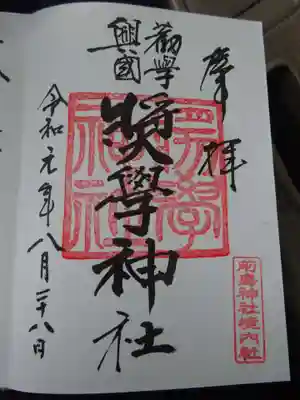 奉拝
勸學
興國
奬學神社
令和元年八月二十八日
奬學
神社
前鳥神社境内社